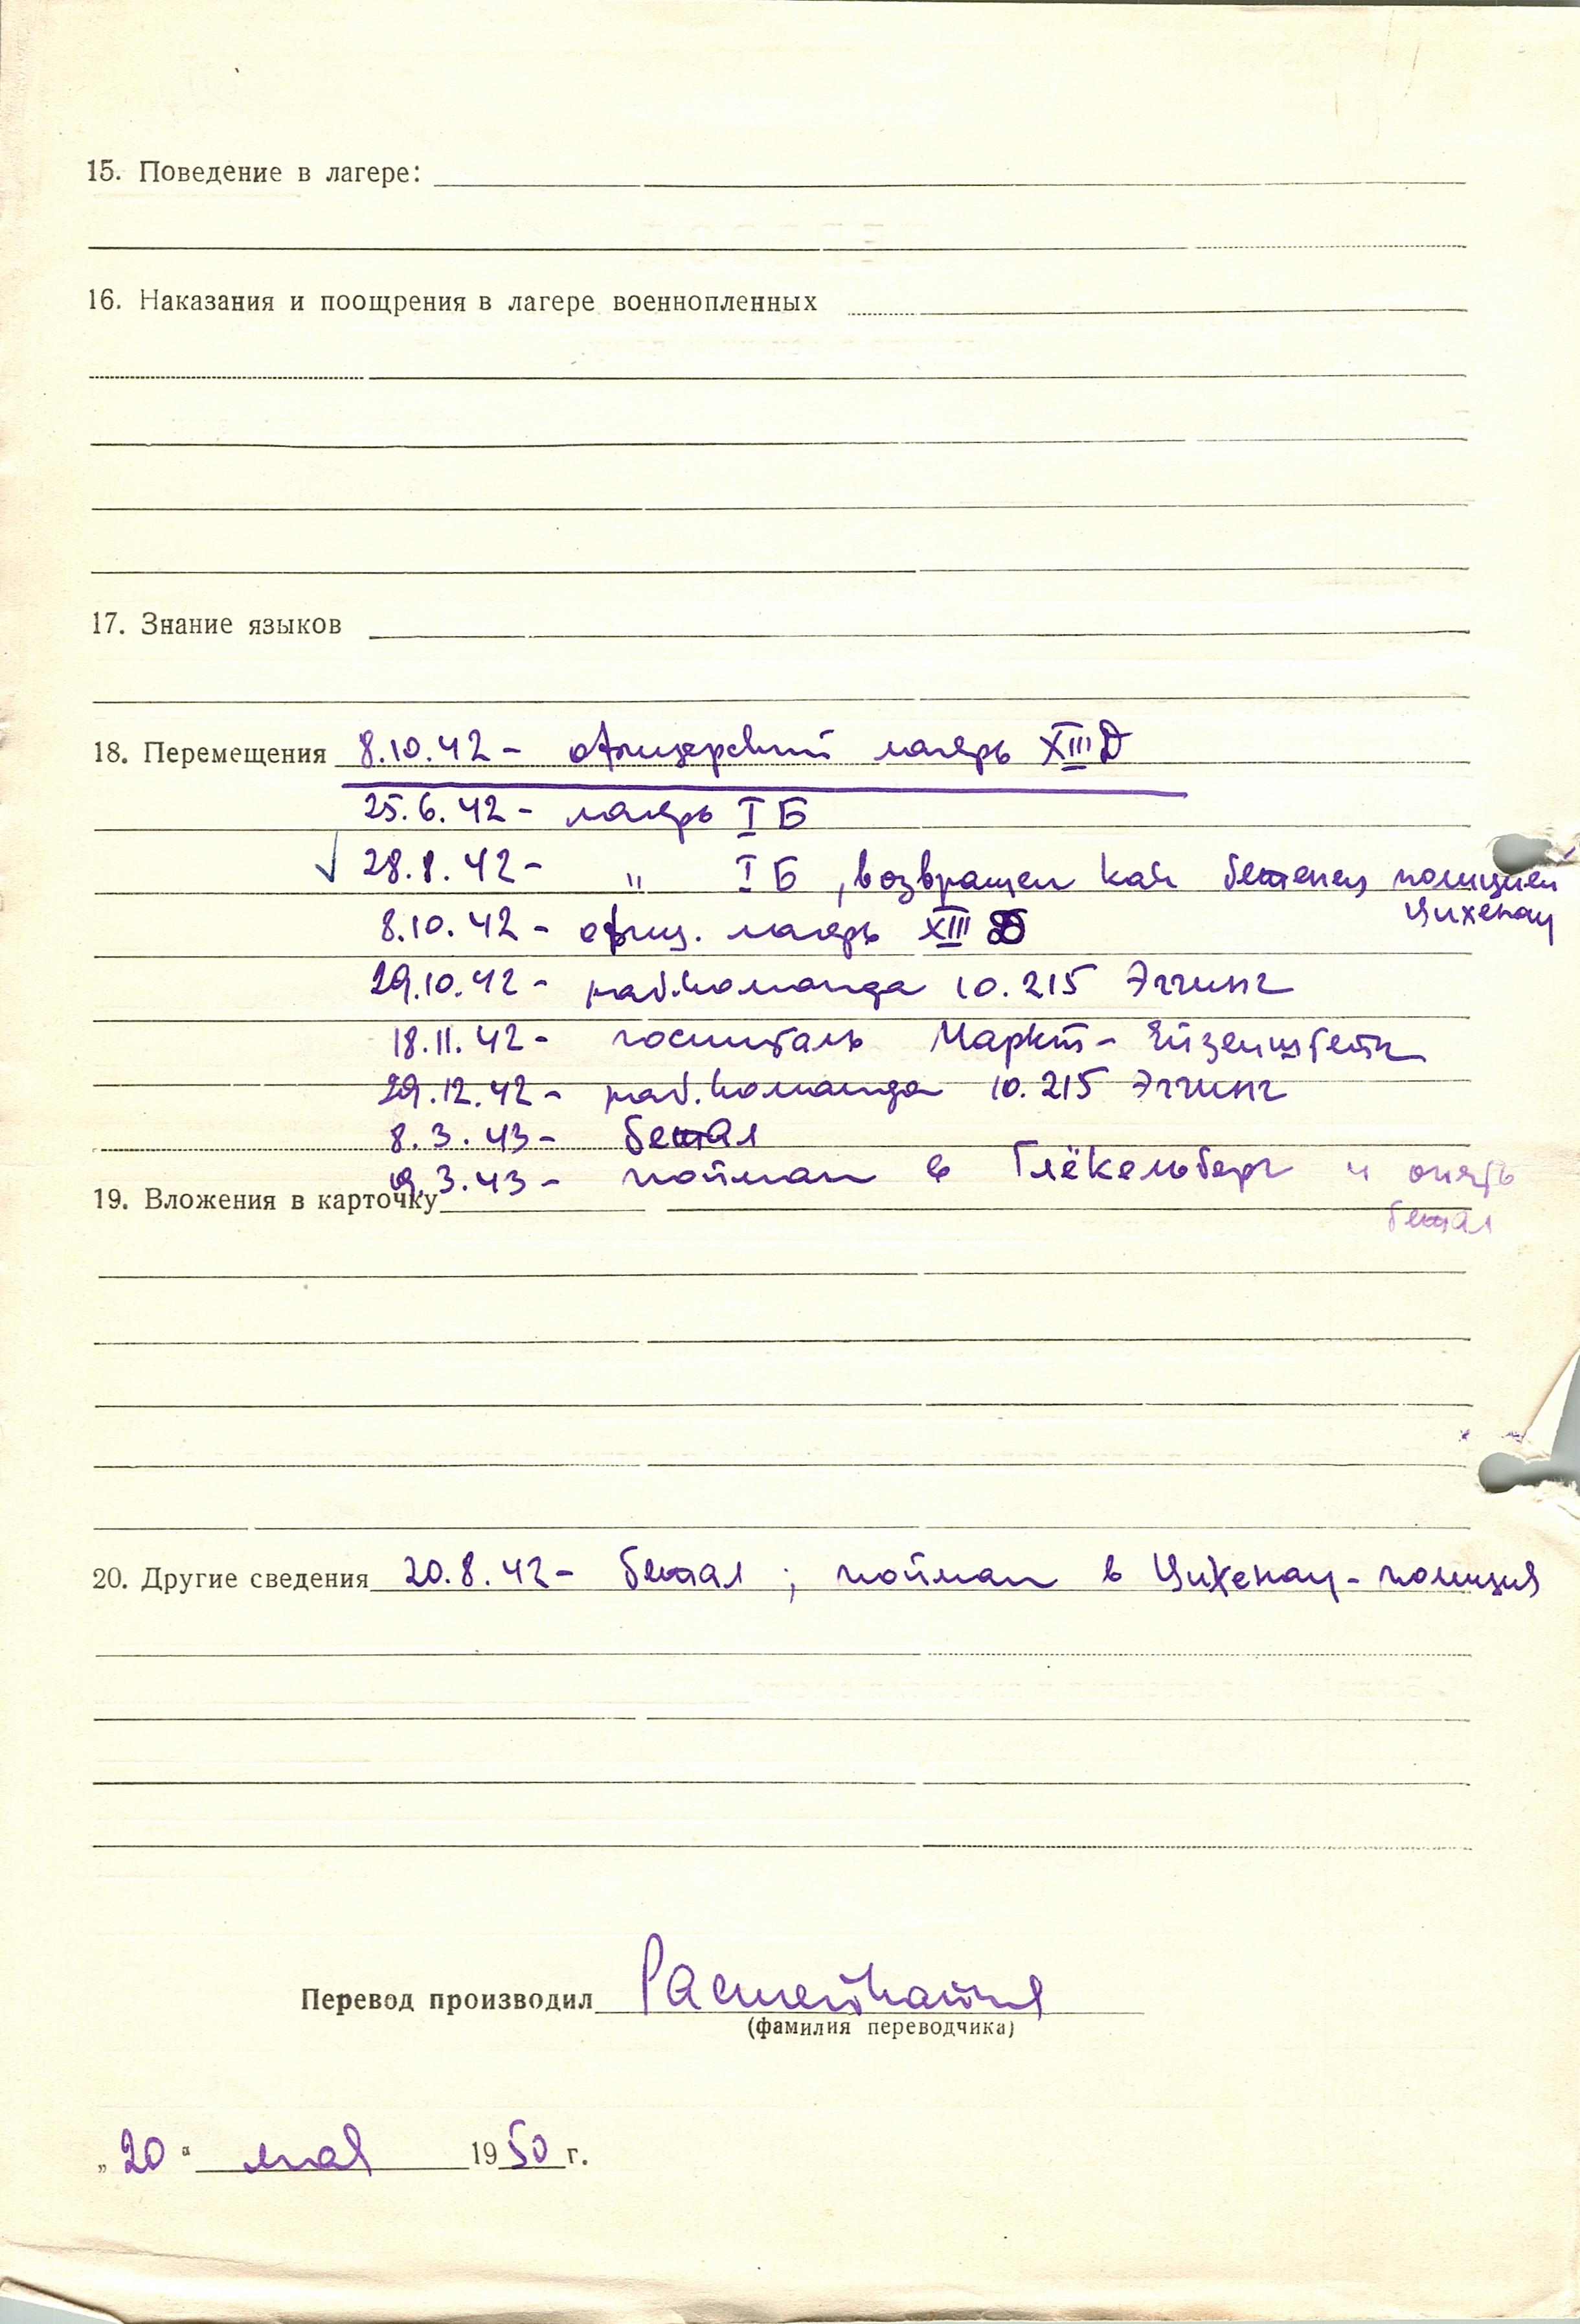 15. Поведение в лагере:
16. Наказания и поощрения в лагере военнопленных
17. Знание языков
18. Перемещения 8.10.42 - офицерский лагерь XIII Д
25.6.42 - лагерь I Б
28.8.42 - " I Б, возвращен как бежавший полицией
Цихенау
8.10.42 - офиц. лагерь XIII Д
29.10.42 - раб.команда 10.215 Эггинг
18.11.42 - госпиталь Маркт-Ейзенштейн
29.12.42 - раб.команда 10.215 Эггинг
8.3.43 - бежал
9.3.43 - пойман в Глёкельберг и опять
бежал
19. Вложения в карточку
20. Другие сведения 20.8.42 - бежал; пойман в Цихенау - полиция
Перевод производил
(фамилия переводчика)
„20“ мая 1950 г.